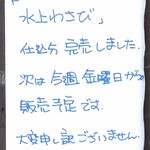 「
水上わさび」
仕込分 完売しました.
次は今週金曜日から
販売予定です.
大変申し訳ございません.